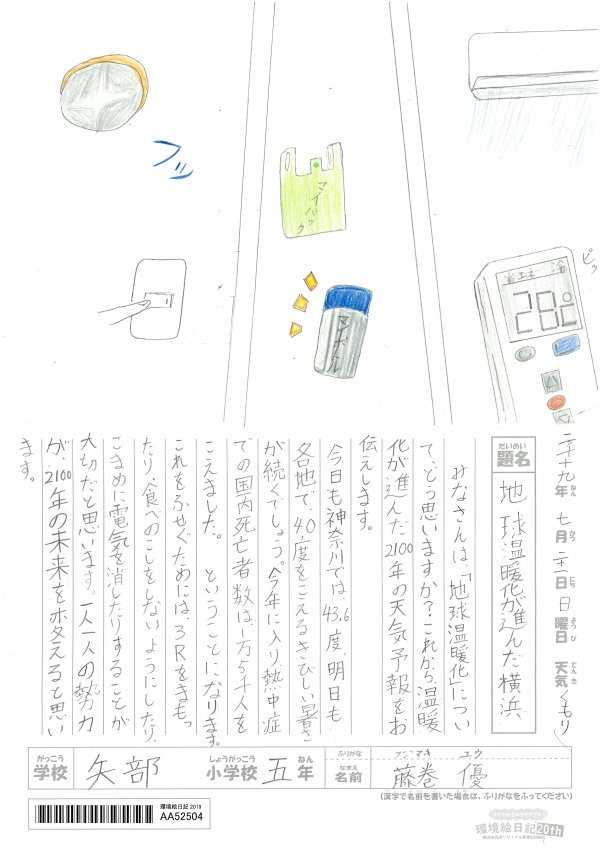 フッ
マイバック
マイボトル
ピッ
省エネ 冷
28℃
二千十九年 七月 二十一日 日曜日 天気 くもり
ねん がつ にち ようび てんき
だいめい
題名 地球温暖化が進んだ横浜
みなさんは、「地球温暖化」につい
て、どう思いますか？これから、温暖
化が進んだ2100年の天気予報をお
伝えします。
今日も神奈川では、43.6度、明日も
各地で、40度をこえるきびしい暑さ
が続くでしょう。今年に入り、熱中症
での国内死亡者数は一万5千人を
こえました。 ということになります。
これをふせぐためには、3Rをまもっ
たり、食べのこしをしないようにしたり、
こまめに電気を消したりすることが
大切だと思います。一人一人の勢力
が、2100年の未来をホタえると思い
ます。
がっこう しょうがっこう ねん ふりがな フジマキ ユウ
学校 矢部 小学校 五年 なまえ 名前 藤巻 優
(漢字で名前を書いた場合は、ふりがなをふってください)
環境絵日記 2019
AA52504
環境絵日記20th